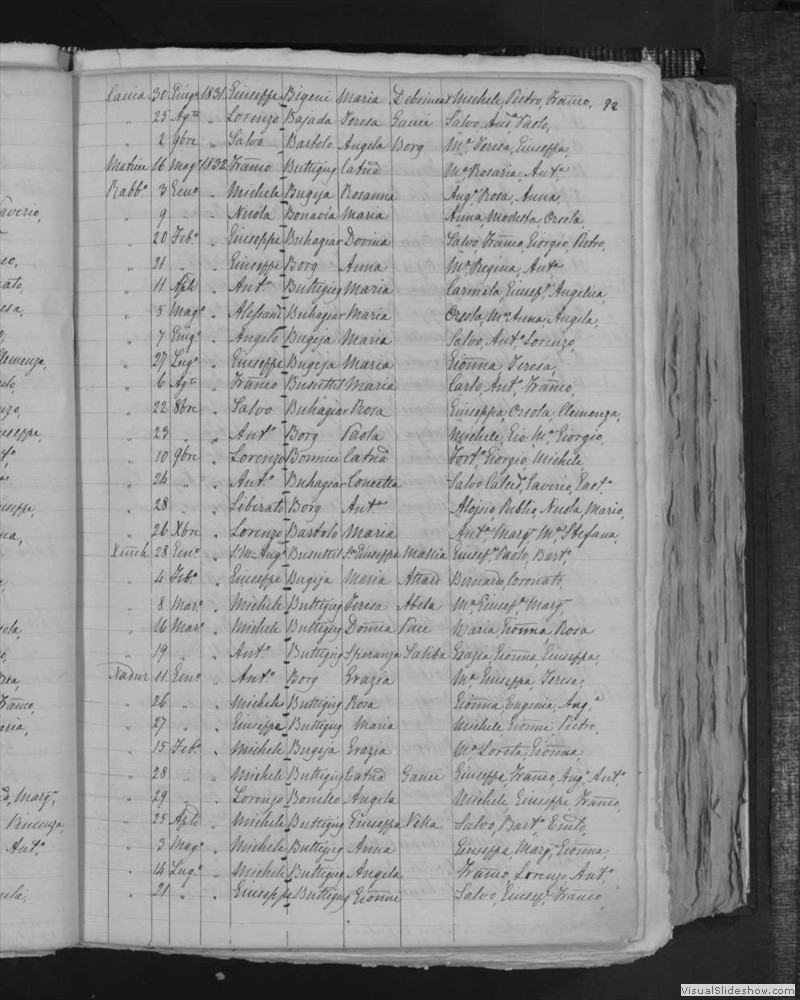 Caccia 30 Giug.o 1831 Giuseppe Bigeni Maria Debrincat Michele, Pietro, Franco, 92
" 25 Ag.to " Lorenzo Bajada Teresa Gauci Salvo, Ant.o Paolo,
" 2 9bre " Salvo Bartolo Angela Borg M.a Teresa, Giuseppa,
16 Mag.o 1832 Franco Buttigieg Catna M.a Rosaria, Ant.a
Rabb.o 3 Gen.o " Michele Bugeja Rosanna Ang.a Rosa, Anna,
" 9 " " Nicola Bonavia Maria Anna, Modesta Orsola,
" 20 Feb.o " Giuseppe Buhagiar Dovina Salvo Franco, Giorgio, Pietro,
" 21 " " Giuseppe Borg Anna M.a Regina, Ant.a
" 11 Aple " Ant.o Buttigieg Maria Carmela, Giusep.a Angelica,
" 5 Mag.o " Alessand Buhagiar Maria Orsola, M.a Anna, Angela,
" 7 Giug.o " Angelo Bugeja Maria Salvo, Ant.o Lorenzo,
" 27 Lug.o " Giuseppe Bugeja Maria Gionna Teresa,
" 6 Ag.to " Franco Busuttil Maria Carlo, Ant.o Franco,
" 22 8bre " Salvo Buhagiar Rosa Giuseppa, Orsola, Clemenza,
" 23 " " Ant.o Borg Paola Michele, Gio M.a Giorgio,
" 10 9bre " Lorenzo Bonnici Catna Fort.o Giorgio, Michele,
" 24 " " Ant.o Buhagiar Concetta Salvo Calced.o Saverio, Gaet.o
" 28 " " Liberat Borg Ant.a Aloisio Publio, Nicola, Mario,
" 26 Xbre " Lorenzo Bartolo Maria Ant.a Marg.a M.a Stefana,
Xeuch 28 Gen.o " P. M. Ang.o Busuttil Giuseppa Masia Giusep.e Paolo, Bart.o
" 4 Feb.o " Giuseppe Bugeja Maria Attard Bernardo, Coronato,
" 8 Mar.o " Michele Buttigieg Teresa Abela M.a Giusep.a Marg.a
" 16 Mar.o " Michele Buttigieg Domca Pace Maria, Gionna, Rosa
" 19 " " Ant.o Buttigieg Speranza Saliba Grazia, Gionna, Giuseppa,
Nadur 11 Gen.o " Ant.o Borg Grazia M.a Giuseppa, Teresa,
" 26 " " Michele Buttigieg Rosa Gionna Eugenia, Ang.a
" 27 " " Giuseppe Buttigieg Maria Michele, Gionni Pietro,
" 15 Feb.o " Michele Bugeja Grazia M.a Loreta, Gionna,
" 28 " " Michele Buttigieg Catna Gauci Giuseppe, Franco, Ang.o Ant.o
" 29 " " Lorenzo Bonello Angela Michele Giuseppe Franco,
" 25 Aple " Michele Buttigieg Giuseppa Vella Salvo, Bart.o
" 3 Mag.o " Michele Buttigieg Anna Giuseppa, Marg.a Gionna,
" 14 Lug.o " Michele Buttigieg Angela Franco, Lorenzo, Ant.o
" 21 " " Giuseppe Buttigieg Gionni Salvo, Giusep.e Franco,
VisualSlideshow.com